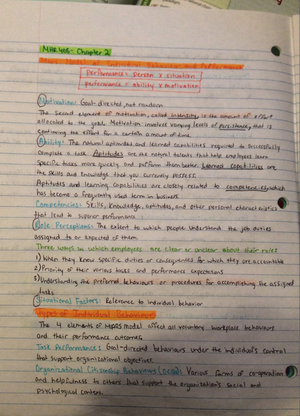 MHR 405- Chapter 2
MARS Model of Individual Behaviour and Performance
performance = person x situation
performance = ability x motivation
Motivation: Goal-directed, not random
The second element of motivation, called intensity, is the amount of effort
allocated to the goal. Motivation involves varying levels of persistence, that is
continuing the effort for a certain amount of time.
Ability: The natural aptitudes and learned capabilities required to successfully
complete a task. Aptitudes are the natural talents that help employees learn
specific tasks more quickly and perform them better. Learned capabilities are
the skills and knowledge that you currently possess.
Aptitudes and learning capabilities are closely related to competencies, which
has become a frequently used term in business
Competencies: Skills, knowledge, aptitudes, and other personal characteristics
that lead to superior performance
Role Perceptions: The extent to which people understand the job duties
assigned to or expected of them.
Three ways in which employees are clear or unclear about their role:
1) When they know specific duties or consequences for which they are accountable
2) Priority of their various tasks and performance expectations
3) Understanding the preferred behaviours or procedures for accomplishing the assigned
tasks.
Situational Factors: Relevance to individual behavior
Types of Individual Behaviour
The 4 elements of MARS model affect all voluntary workplace behaviours
and their performance outcomes
Task Performance: Goal-directed behaviours under the individual's control
that support organizational objectives.
Organizational Citizenship Behaviours (OCBs): Various forms of co-operation
and helpfulness to others that support the organization's social and
psychological context.